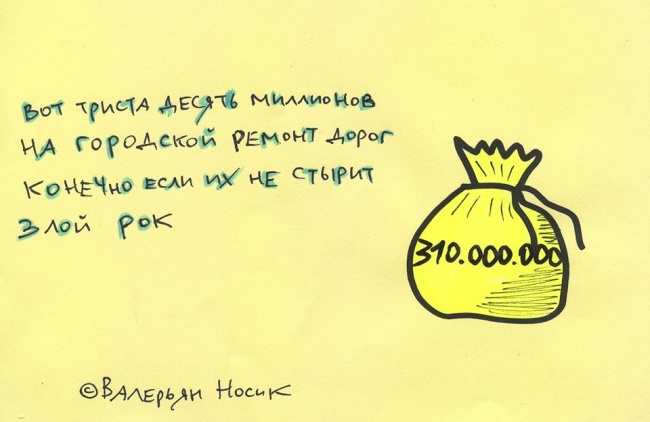 Вот триста десять миллионов
на городской ремонт дорог
конечно если их не стырит
злой рок
310.000.000
©Валерьян Носик